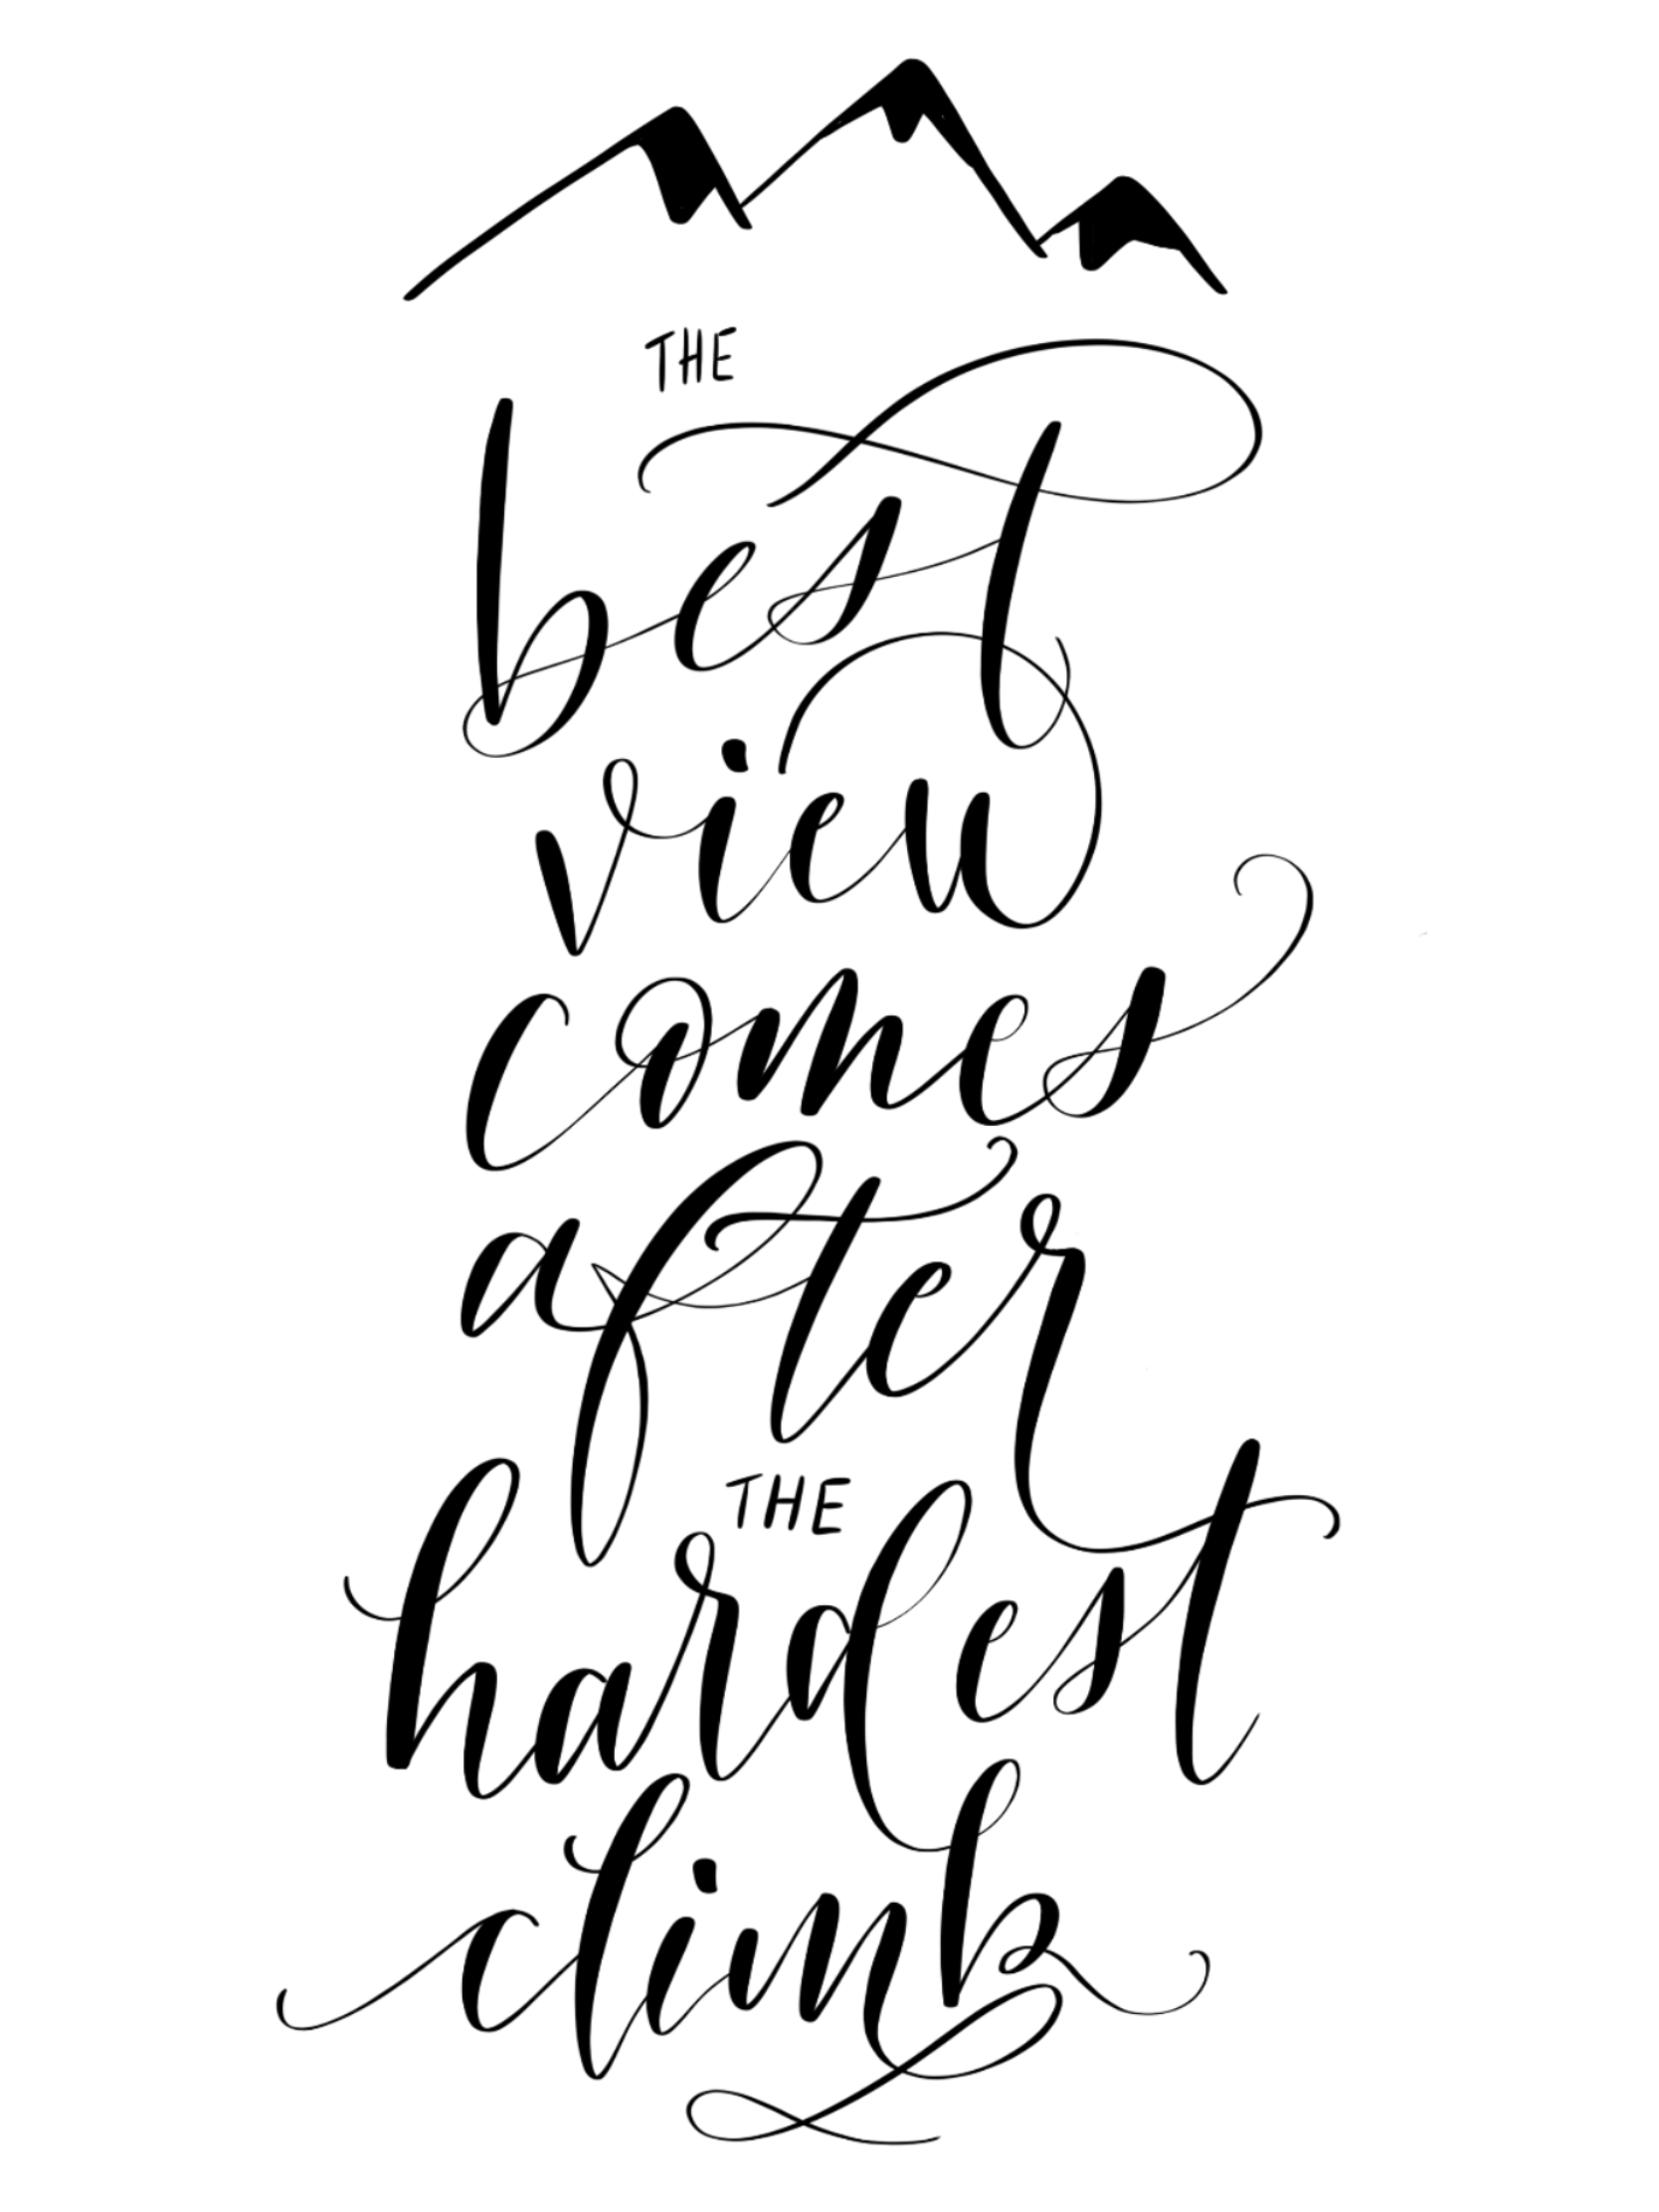 THE
best
view
comes
after
THE
hardest
climb